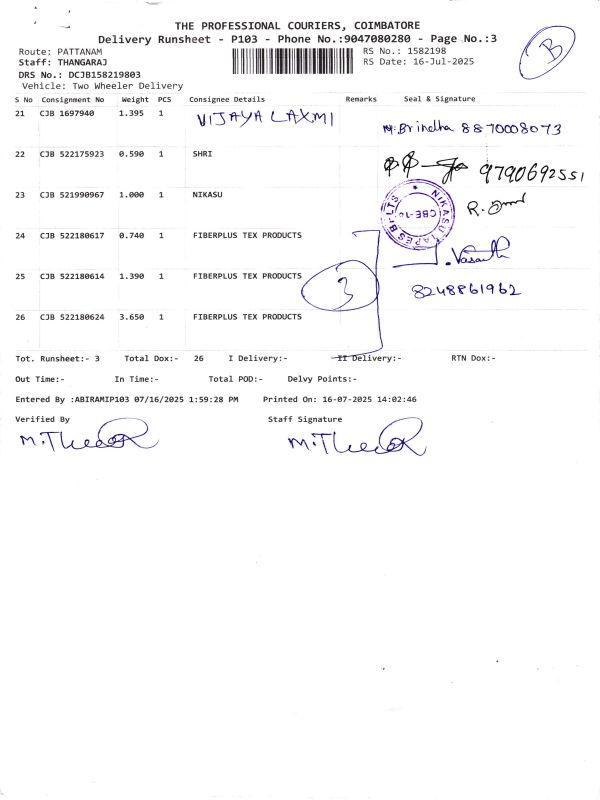 THE PROFESSIONAL COURIERS, COIMBATORE
Delivery Runsheet - P103 - Phone No.:9047080280 - Page No.:3
B
Route: PATTANAM
RS No.: 1582198
Staff: THANGARAJ
RS Date: 16-Jul-2025
DRS No.: DCJB158219803
Vehicle: Two Wheeler Delivery
S No Consignment No Weight PCS Consignee Details Remarks Seal & Signature
21 CJB 1697940 1.395 1 VIJAYA LAXMI
M. Brindha 8870008073
22 CJB 522175923 0.590 1 SHRI
9790692551
23 CJB 521990967 1.000 1 NIKASU
NIKASU TAPES
CBE-10
24 CJB 522180617 0.740 1 FIBERPLUS TEX PRODUCTS
J. Vasanth
25 CJB 522180614 1.390 1 FIBERPLUS TEX PRODUCTS
3
8248861962
26 CJB 522180624 3.650 1 FIBERPLUS TEX PRODUCTS
Tot. Runsheet:- 3 Total Dox:- 26 I Delivery:- II Delivery:- RTN Dox:-
Out Time:- In Time:- Total POD:- Delvy Points:-
Entered By :ABIRAMIP103 07/16/2025 1:59:28 PM Printed On: 16-07-2025 14:02:46
Verified By Staff Signature